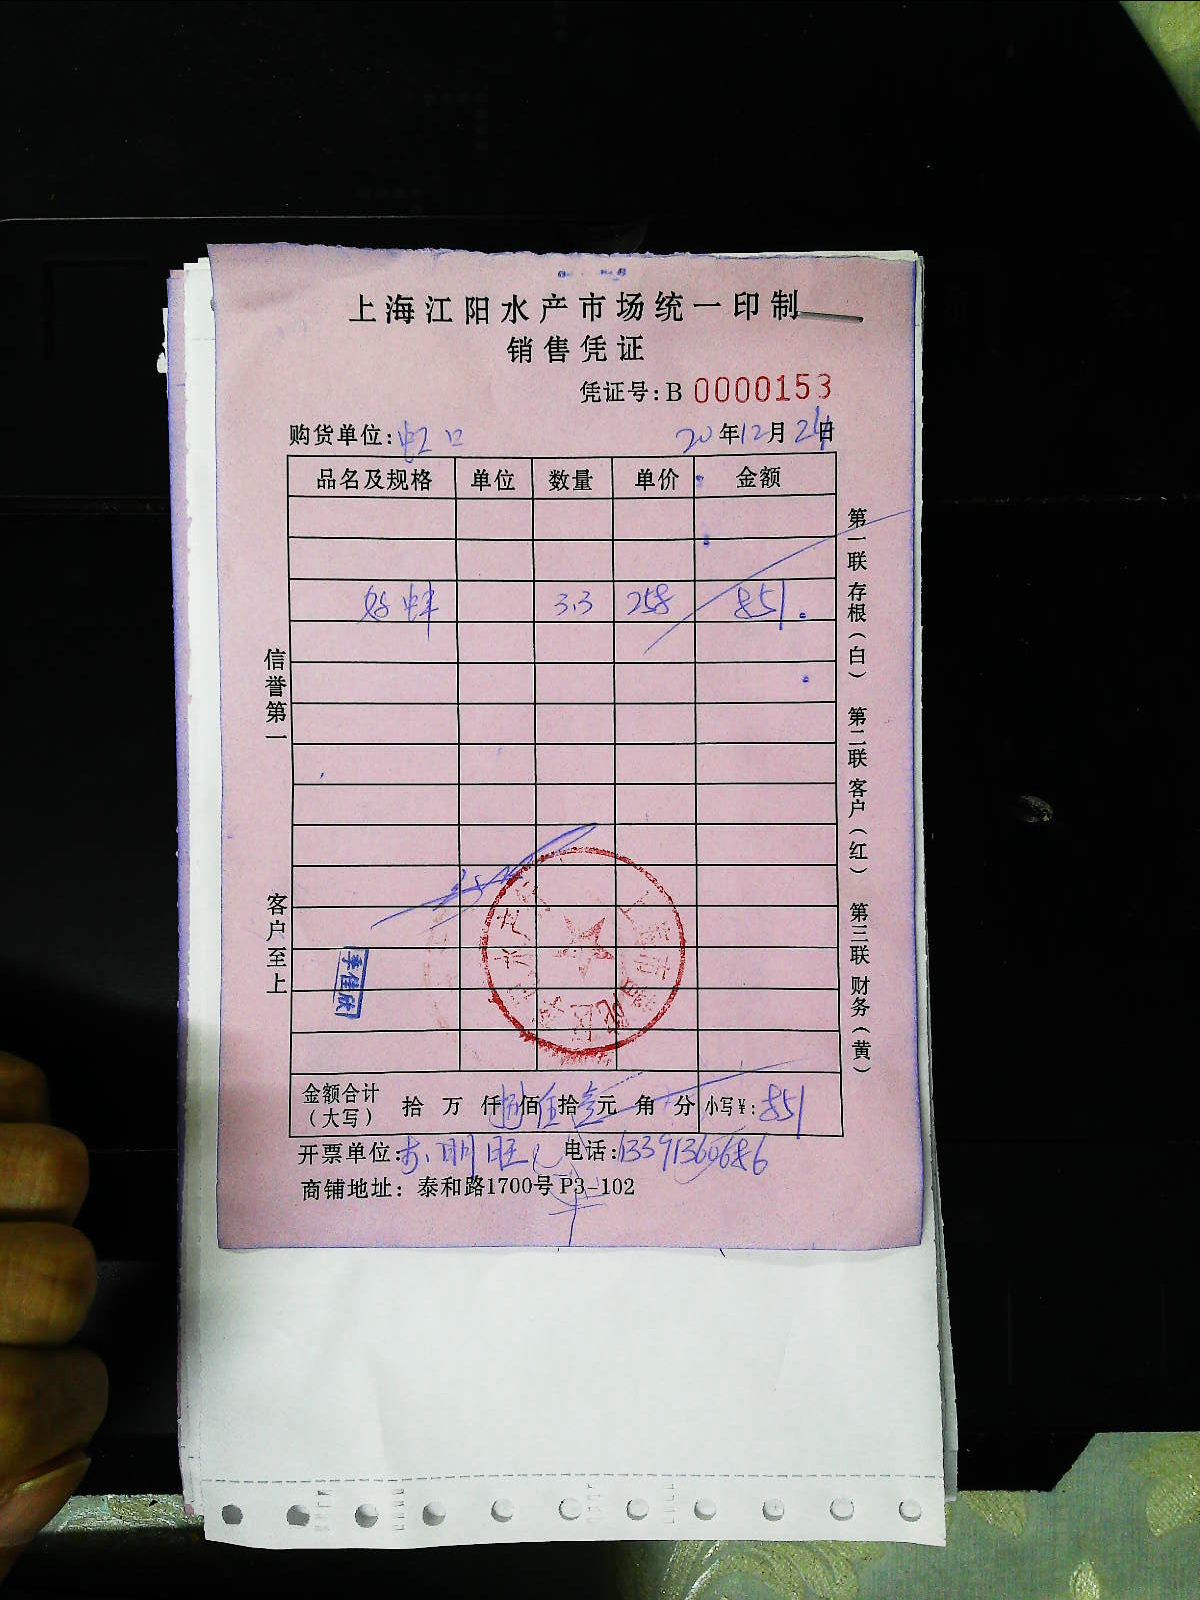 上海江阳水产市场统一印制
销售凭证
凭证号:B 0000153
购货单位:虹口 20年12月24日
品名及规格 单位 数量 单价 金额
3.3 258 851.
信誉第一
客户至上
第一联 存根(白) 第二联 客户(红) 第三联 财务(黄)
季佳欣
金额合计(大写) 拾 万 仟 捌 佰 伍 拾 壹 元 角 分 小写¥:851
开票单位: 明旺 电话:13391360686
商铺地址: 泰和路1700号P3-102